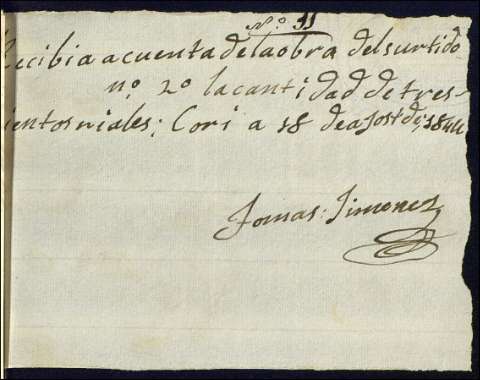 N.º 11
Recibi a cuenta de la obra del surtido
n.º 2º la cantidad de tres-
ientos riales; Cori a 18 de agost de 1844
Tomas Jimenez